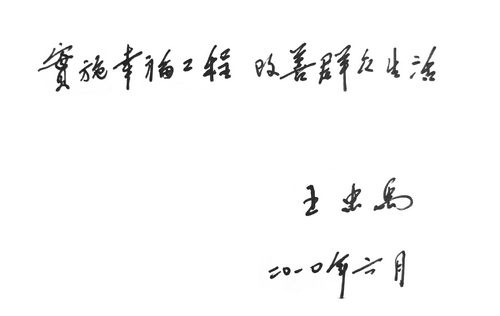 實施幸福工程 改善群众生活
王忠禹
二〇一〇年六月